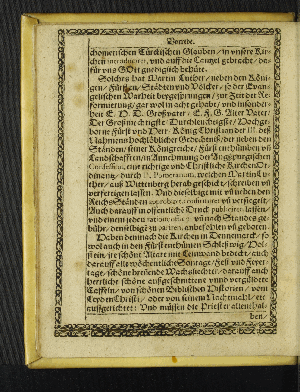 Vorrede.
chometischen Türckischen Glauben / in unsere Kir-
chen introducirt, und auff die Cantzel gebracht / da-
für uns Gott gnediglich behüte.
Solches hat Martin Luther / neben den Köni-
gen / Fürsten / Städten und Völcker / so der Evan-
gelischen Warheit beygesprungen / zur Zeit der Re-
formierung / gar wol in acht gehabt / und insonder-
heit E. F. D. Großvater / E. F. G. Alter Vater /
Der Großmechtigste / Durchleuchtigste / Hochge-
borne Fürst und Herr / König Christian der III. deß
Nahmens hochlöblicher Gedechtnuß / der neben den
Ständen / seiner Königreiche / Fürstenthümben und
Landschafften / in Annehmung der Augspurgischen
Confession, eine richtige und Christliche Kirchen Or-
dinantz / durch D. Pomeranum, welchen Martin Lu-
ther / auß Wittenberg herab geschickt / schreiben und
verfertigen lassen. Und dieselbige mit
Reichs Ständen
Auch darauff in offentliche Druck publiciren lassen /
und einem jeden und nach Standes ge-
bühr / derselbigt zu pariren, anbefohlen und geboten.
Haben demnach die Kirchen in Dennemarck / so
wol auch in den Fürstenthümen Schleßwig / Hol-
stein / ire schöne Altare mit Leinwand bedeckt / auch
darauff alle wöchentliche Sontage / Fest und Feyer-
tage / schöne brennende Wachsliechter / darauff auch
herrliche schöne außgeschnittene unnd vergüldete
Taffeln / von schönen Biblischen Historien / vom
Leyden Christi / oder von seinem Nachtmahl / etc.
auffgerichtet: Und müssen die Priester allenthal-
ben /